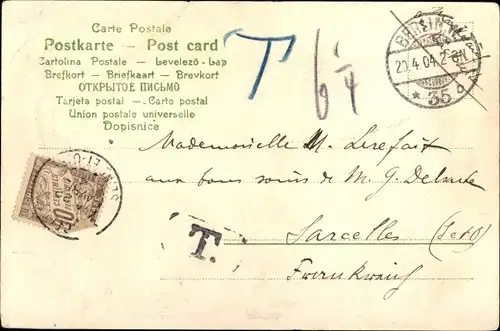 Carte Postale
Postkarte — Post card
Cartolina Postale — Levelező-Lap
Brefkort — Briefkaart — Brevkort
ОТКРЫТОЕ ПИСЬМО
Tarjeta postal — Carto postal
Union postale universelle
Dopisnice
T
20.4.04.
* 35
Mademoiselle M. Lerefait
aux bons soins de M. G.
T.
Sarcelles (S et O)
Frankreich